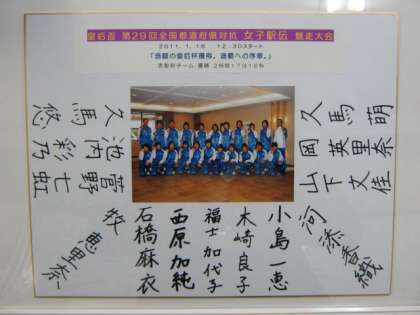 皇后盃 第29回全国都道府県対抗 女子駅伝 競走大会
2011.1.16 12:30スタート
皇后杯獲得。連覇への序章。」
京都府チーム 優勝 2時間17分16秒
久馬萌
岡英里奈
山下文佳
河添香織
小島一恵
木崎良子
福士加代子
西原加純
石橋麻衣
牧恵里奈
菅野七虹
池内彩乃
久馬悠